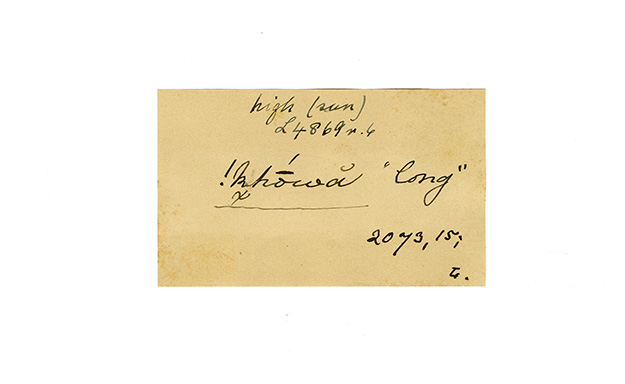 high (sun)
L4869 r. 6
!k̰hṓwă "long"
2073, 15;
L.